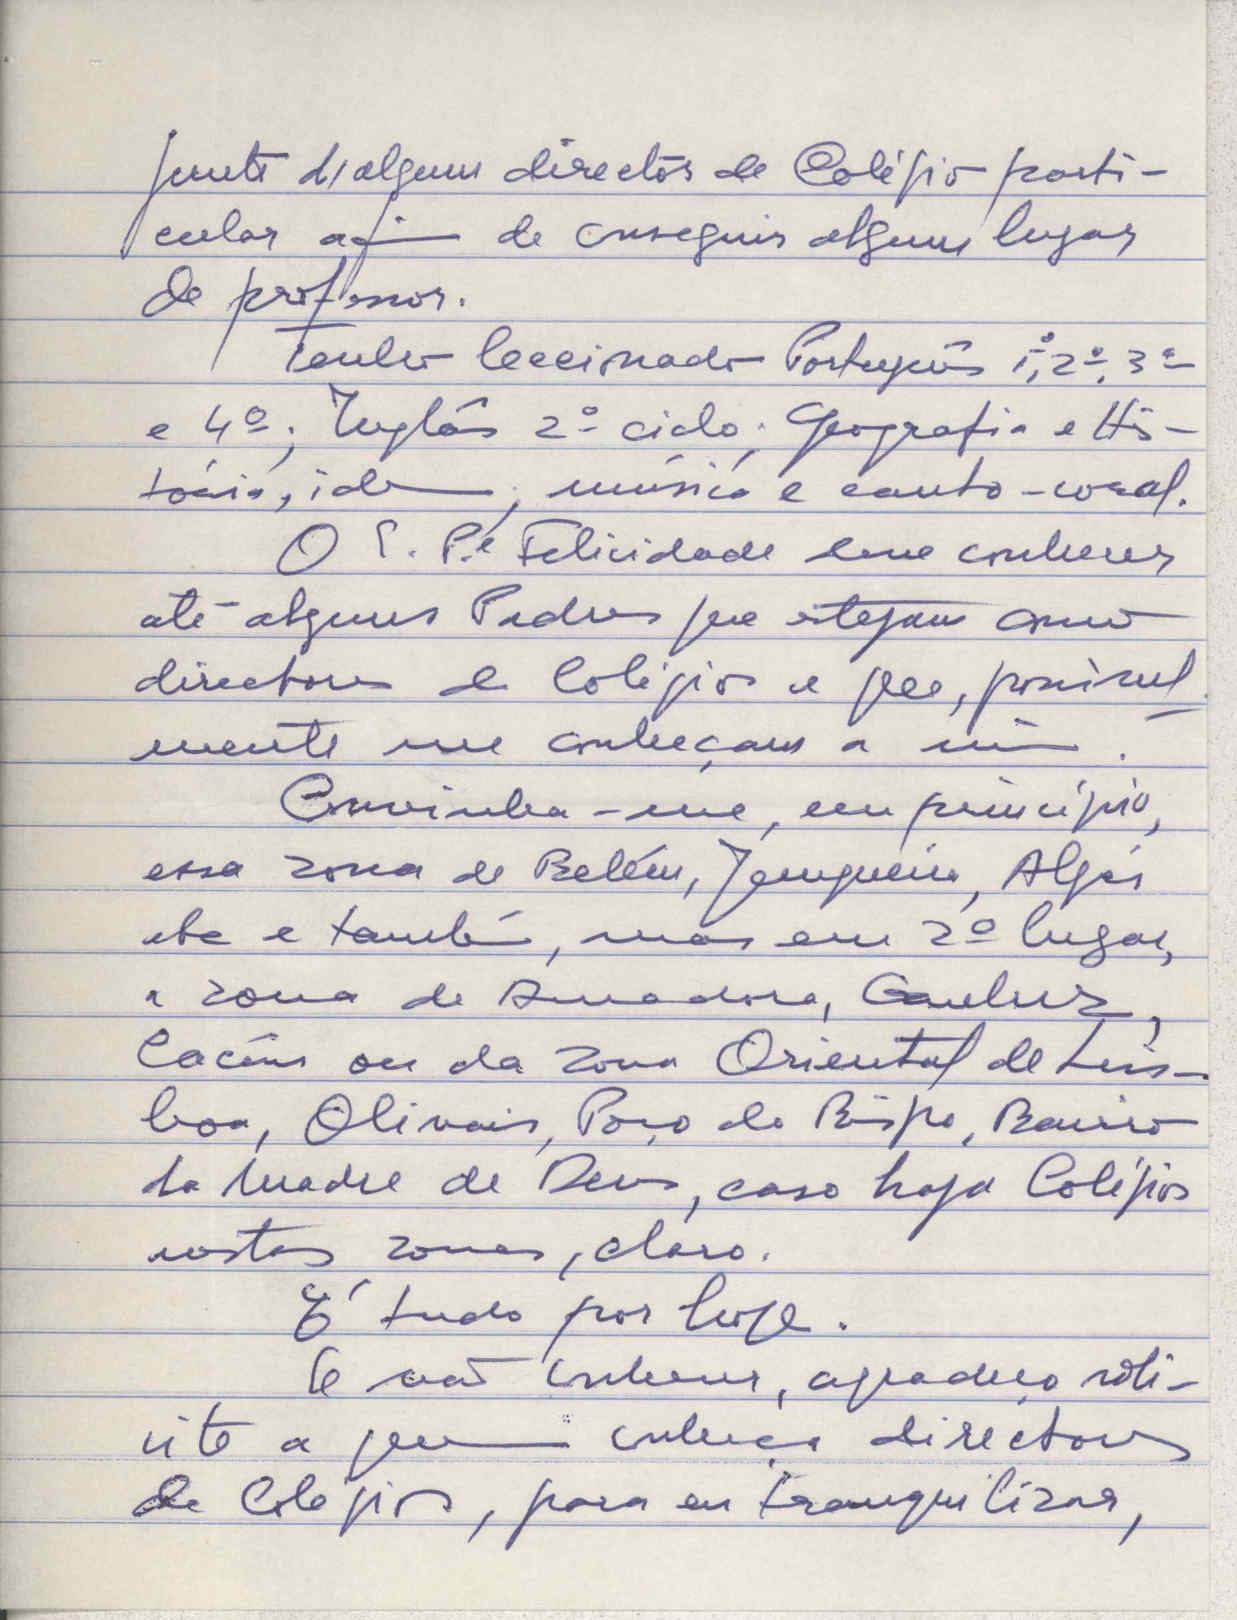 junto d'algum director de Colégio parti-
cular a fim de conseguir algum lugar
de professor.
Tenho leccionado Português 1º, 2º, 3º
e 4º; Inglês 2º ciclo; Geografia e His-
tória, idem; música e canto-coral.
O S. P.e Felicidade deve conhecer
até alguns Padres que estejam como
directores de Colégios e que, possivel-
mente me conheçam a mim.
Convinha-me, em princípio,
essa zona de Belém, Junqueira, Algés
etc e também, mas em 2º lugar,
a zona de Amadora, Queluz,
Cacém ou da zona Oriental de Lis-
boa, Olivais, Poço do Bispo, Bairro
da Madre de Deus, caso haja Colégios
nestas zonas, claro.
É tudo por hoje.
Se não conhecer, agradeço soli-
cite a quem conheça directores
de Colégios, para eu tranquilizar,